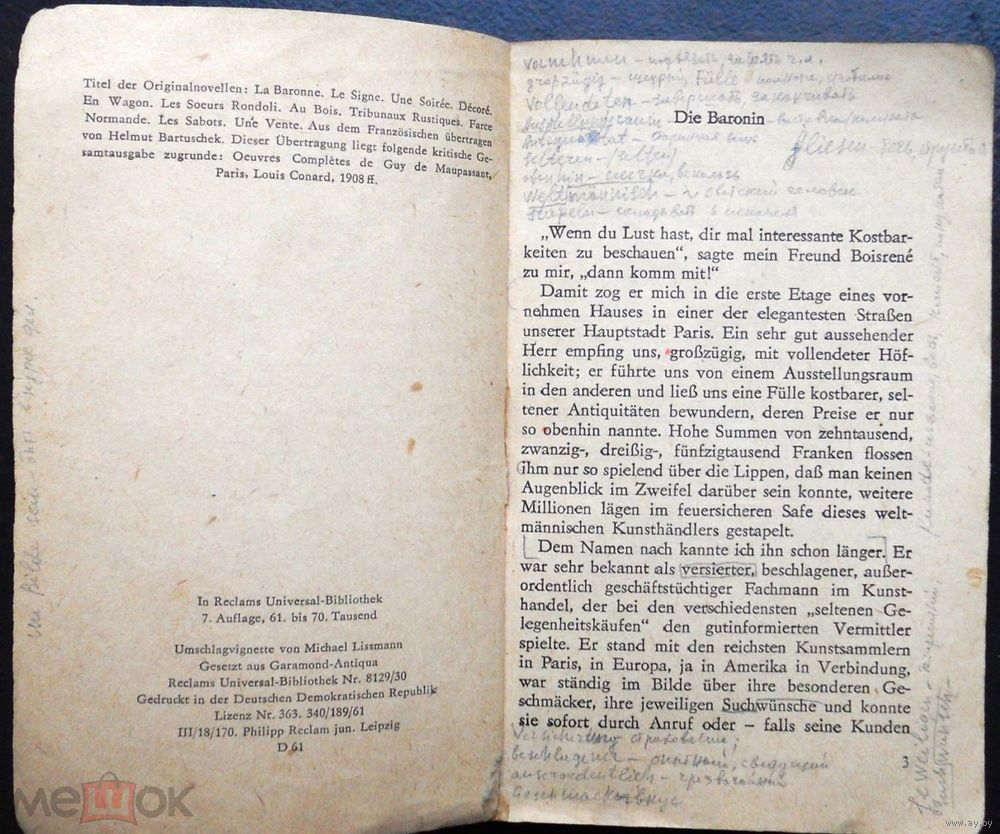 Titel der Originalnovellen: La Baronne. Le Signe. Une Soirée. Décoré.
En Wagon. Les Soeurs Rondoli. Au Bois. Tribunaux Rustiques. Farce
Normande. Les Sabots. Une Vente. Aus dem Französischen übertragen
von Helmut Bartuschek. Dieser Übertragung liegt folgende kritische Ge-
samtausgabe zugrunde: Oeuvres Complètes de Guy de Maupassant,
Paris, Louis Conard, 1908 ff.
im Bilde sein - быть в курсе дел.
In Reclams Universal-Bibliothek
7. Auflage, 61. bis 70. Tausend
Umschlagvignette von Michael Lissmann
Gesetzt aus Garamond-Antiqua
Reclams Universal-Bibliothek Nr. 8129/30
Gedruckt in der Deutschen Demokratischen Republik
Lizenz Nr. 363. 340/189/61
III/18/170. Philipp Reclam jun. Leipzig
D 61
мешок
vornehmen -
großzügig - щедрый Fülle
vollendeten - завершать, заканчивать
Ausstellungsraum
Die Baronin
Antiquität
fliesen - течь
selteren - /selten/
obenhin -
Weltmännisch - светский человек
stapeln - складывать в
„Wenn du Lust hast, dir mal interessante Kostbar-
keiten zu beschauen“, sagte mein Freund Boisrené
zu mir, „dann komm mit!“
Damit zog er mich in die erste Etage eines vor-
nehmen Hauses in einer der elegantesten Straßen
unserer Hauptstadt Paris. Ein sehr gut aussehender
Herr empfing uns, großzügig, mit vollendeter Höf-
lichkeit; er führte uns von einem Ausstellungsraum
in den anderen und ließ uns eine Fülle kostbarer, sel-
tener Antiquitäten bewundern, deren Preise er nur
so obenhin nannte. Hohe Summen von zehntausend,
zwanzig-, dreißig-, fünfzigtausend Franken flossen
ihm nur so spielend über die Lippen, daß man keinen
Augenblick im Zweifel darüber sein konnte, weitere
Millionen lägen im feuersicheren Safe dieses welt-
männischen Kunsthändlers gestapelt.
Dem Namen nach kannte ich ihn schon länger. Er
war sehr bekannt als versierter, beschlagener, außer-
ordentlich geschäftstüchtiger Fachmann im Kunst-
handel, der bei den verschiedensten „seltenen Ge-
legenheitskäufen“ den gutinformierten Vermittler
spielte. Er stand mit den reichsten Kunstsammlern
in Paris, in Europa, ja in Amerika in Verbindung,
war ständig im Bilde über ihre besonderen Ge-
schmäcker, ihre jeweiligen Suchwünsche und konnte
sie sofort durch Anruf oder – falls seine Kunden
Versicherung страхование;
beschlagener - опытный, сведущий
ausserordentlich - чрезвычайный
Geschmack - вкус
3
jeweiligen -
www.ay.by